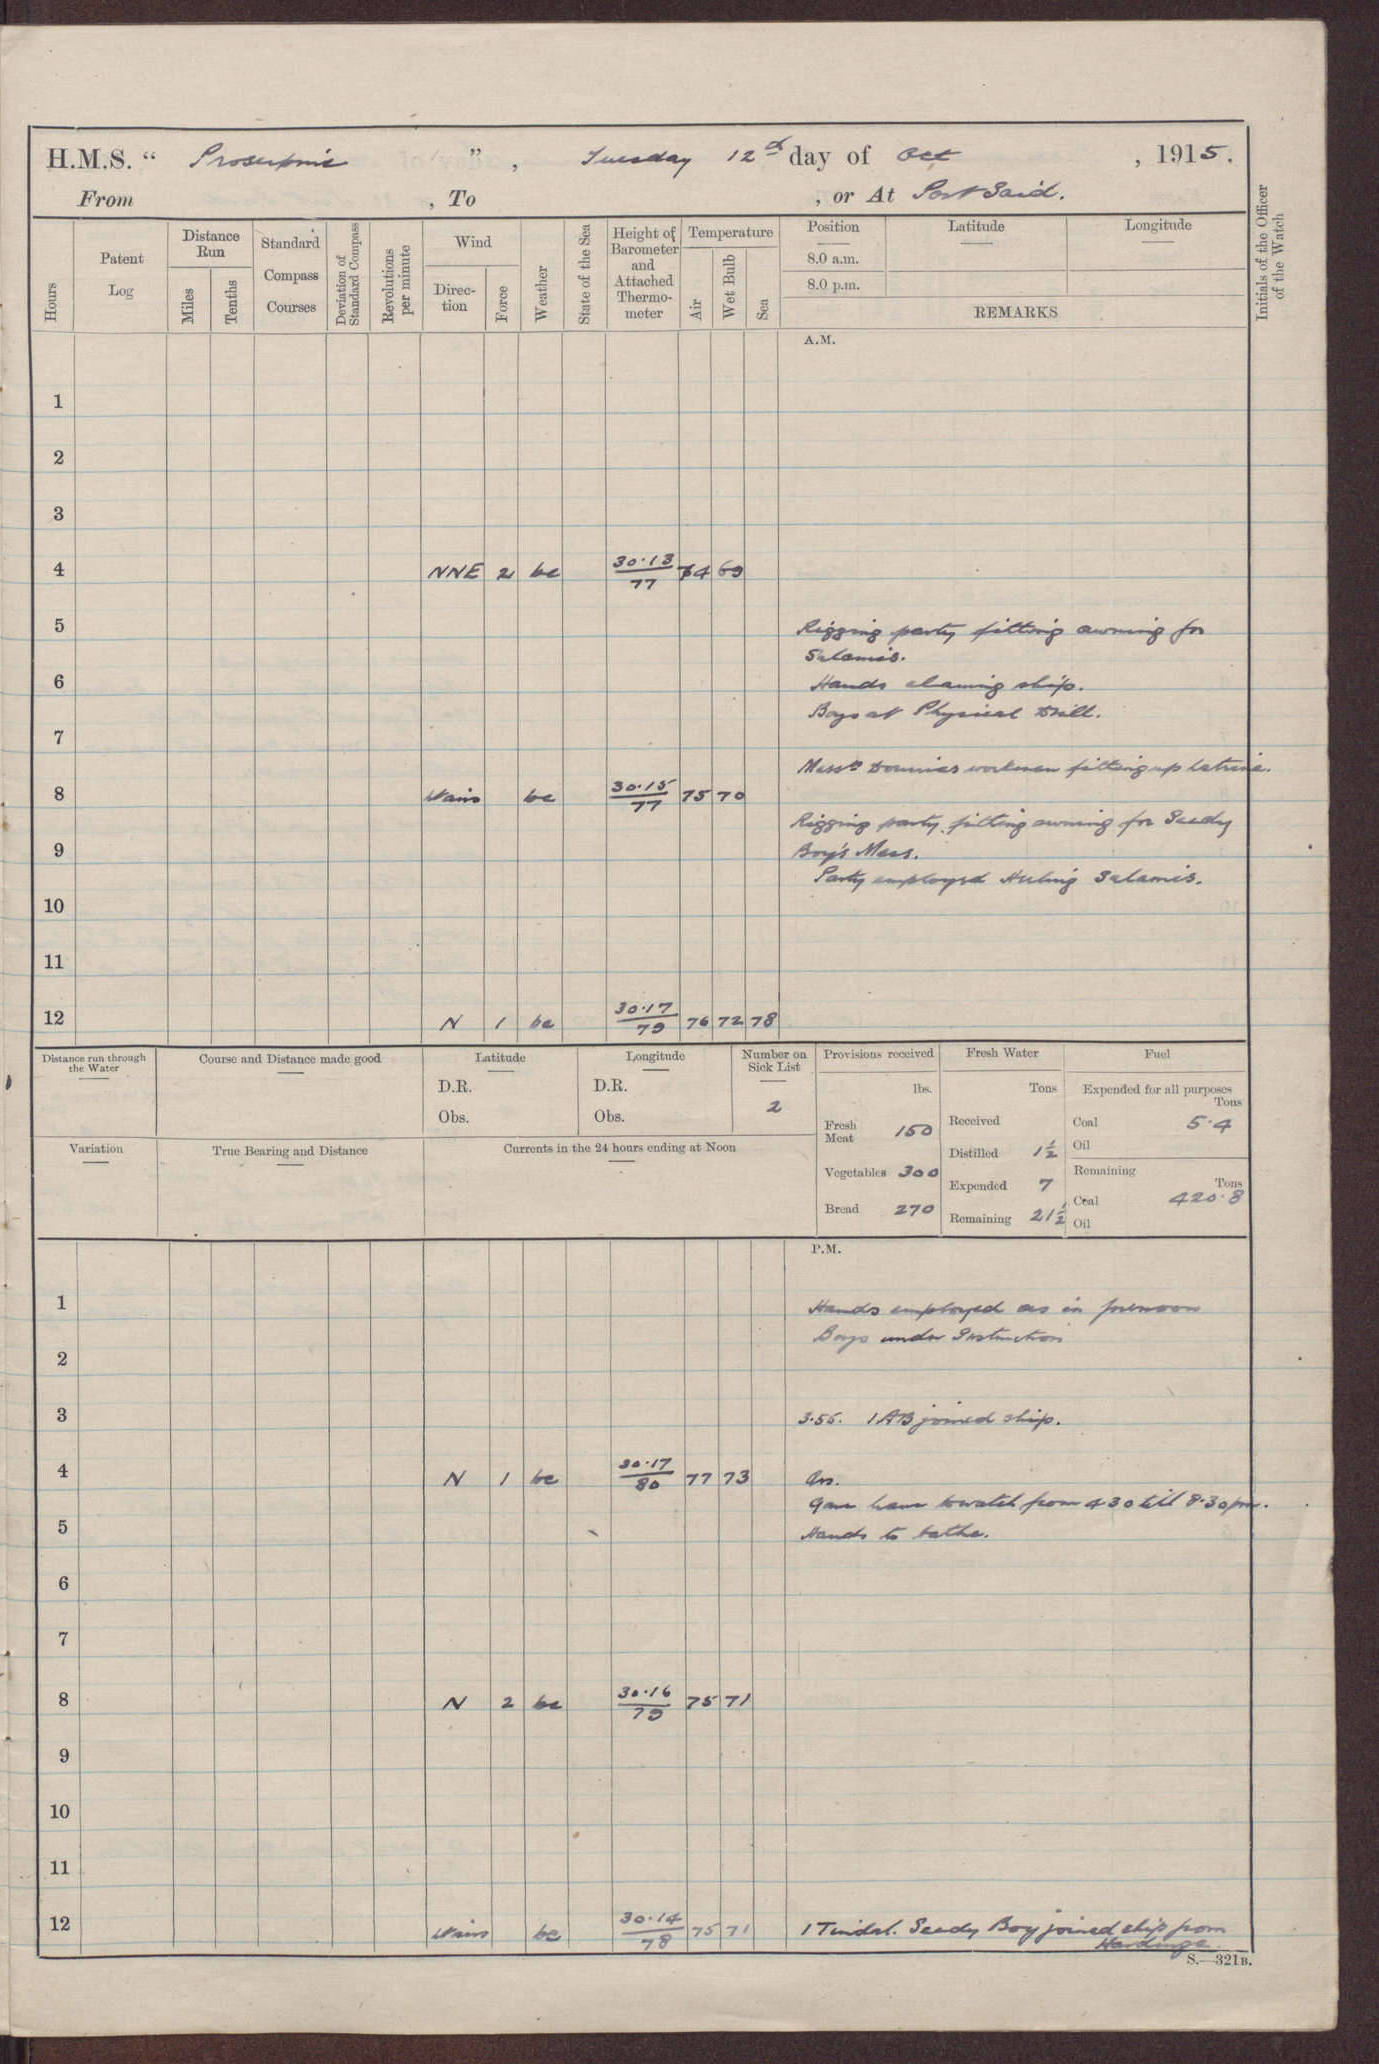 H.M.S. " Proserpine " , Tuesday 12th day of Oct , 1915.
From , To , or At Port Said.
Hours
Patent Log
Distance Run
Miles
Tenths
Standard Compass Courses
Deviation of Standard Compass
Revolutions per minute
Wind
Direction
Force
Weather
State of the Sea
Height of Barometer and Attached Thermometer
Temperature
Air
Wet Bulb
Sea
Position
8.0 a.m.
8.0 p.m.
Latitude
Longitude
REMARKS
Initials of the Officer of the Watch
A.M.
1
2
3
4 NNE 2 bc 30·13 77 74 69
5 Rigging party fitting awning for
Salamis.
6 Hands cleaning ship.
Boys at Physical Drill.
7
Messrs workmen fitting up latrine.
8 Vairs bc 30·15 77 75 70
Rigging party fitting awning for Seedy
9 Boy's Mess.
Party employed Salamis.
10
11
12 N 1 bc 30·17 79 76 72 78
Distance run through the Water
Course and Distance made good
Latitude
D.R.
Obs.
Longitude
D.R.
Obs.
Number on Sick List
2
Provisions received
lbs.
Fresh Meat 150
Vegetables 300
Bread 270
Fresh Water
Tons
Received
Distilled 1½
Expended 7
Remaining 21½
Fuel
Expended for all purposes
Tons
Coal 5·4
Oil
Remaining
Tons
Coal 420·8
Oil
Variation
True Bearing and Distance
Currents in the 24 hours ending at Noon
P.M.
1 Hands employed as in forenoon
Boys under Instruction
2
3 3.55. 1 AB joined ship.
4 N 1 bc 30·17 80 77 73
Gave leave to watch from 4 30 till 8.30 pm.
5 Hands to bathe.
6
7
8 N 2 bc 30·16 79 75 71
9
10
11
12 Vairs bc 30·14 78 75 71 1 Tindal. Seedy Boy joined ship from
Hardinge
S.—321B.